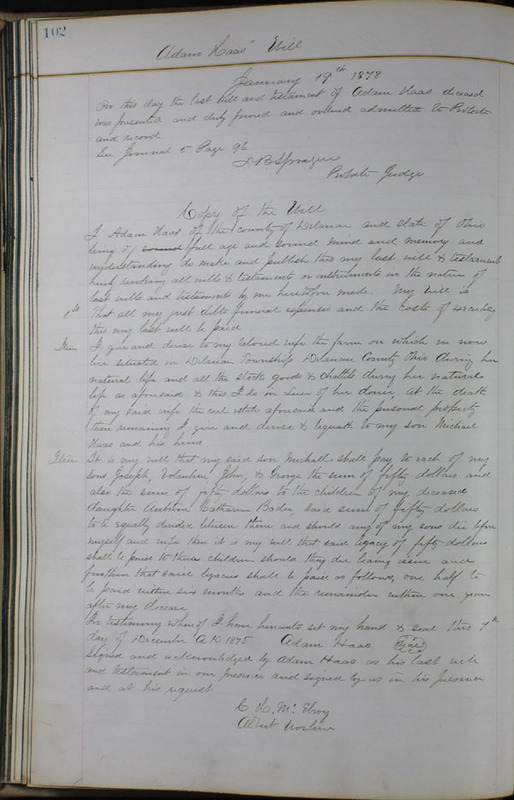 102
Adam Haas' Will
January 19th 1878
On this day the last Will and Testament of Adam Haas deceased
was presented and duly proved and ordered admitted to Probate
and record
See Journal 5 Page 96
Sprague
Probate Judge
Copy of the Will
I Adam Haas of the County of Delaware and State of Ohio
being of sound full age and sound mind and memory and
understanding do make and publish this my last will & testament
hereby revoking all wills & testaments or instruments in the nature of
last wills and testaments by me heretofore made. My will is
1st That all my just debts funeral expenses and the costs of executing
this my last will be paid
Item I give and devise to my beloved wife the farm on which we now
live situated in Delaware Township Delaware County Ohio during her
natural life and all the stock goods & chattels during her natural
life as aforesaid & this I do in Lieu of her dower, at the death
of my said wife the real estate aforesaid and the personal property
then remaining I give and devise & bequeath to my son Michael
Haas and his heirs
Item It is my will that my said son Michael shall pay to each of my
sons Joseph, Valentine, John, & George the sum of fifty dollars and
also the sum of fifty dollars to the children of my deceased
daughter Catharine Bader said sum of fifty dollars
to be equally divided between them and should any of my sons die before
myself and wife then it is my will that said legacy of fifty dollars
shall be paid to their children should they die leaving issue and
further that said legacies shall be paid as follows, one half to
be paid within six months and the remainder within one year
after my decease
In testimony whereof I have hereunto set my hand & seal this 7th
day of December A.D. 1875 Adam Haas Seal
Signed and acknowledged by Adam Haas as his last will
and Testament in our presence and signed by us in his presence
and at his request
C. H. McElroy
Albert